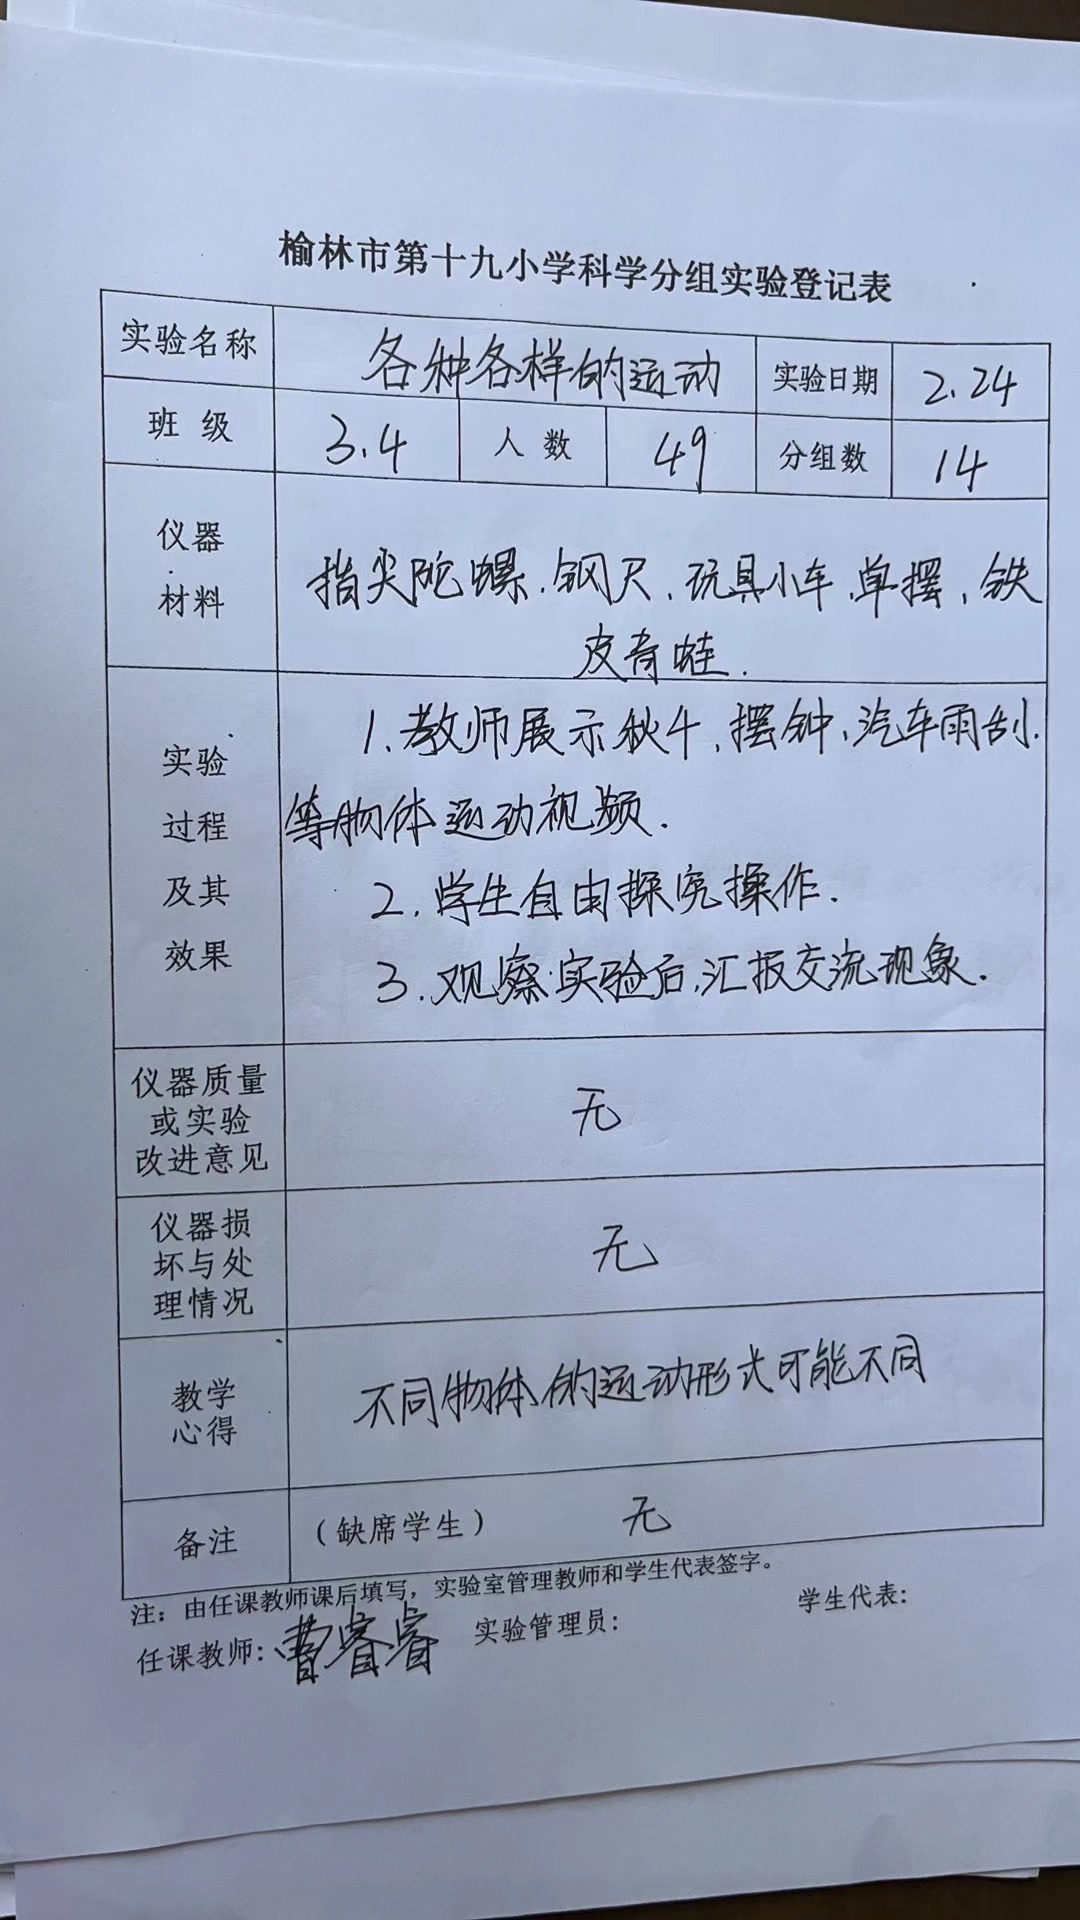 榆林市第十九小学科学分组实验登记表
实验名称 各种各样的运动 实验日期 2.24
班 级 3.4 人 数 49 分组数 14
仪器
材料
指尖陀螺.钢尺、玩具小车、单摆、铁
皮青蛙.
实验
过程
及其
效果
1.教师展示秋千、摆钟、汽车雨刮.
等物体运动视频.
2.学生自由探究操作.
3.观察实验后,汇报交流现象.
仪器质量
或实验
改进意见
无
仪器损
坏与处
理情况
无
教学
心得
不同物体的运动形式可能不同
备注 (缺席学生) 无
注：由任课教师课后填写，实验室管理教师和学生代表签字。
任课教师: 曹睿睿 实验管理员: 学生代表: